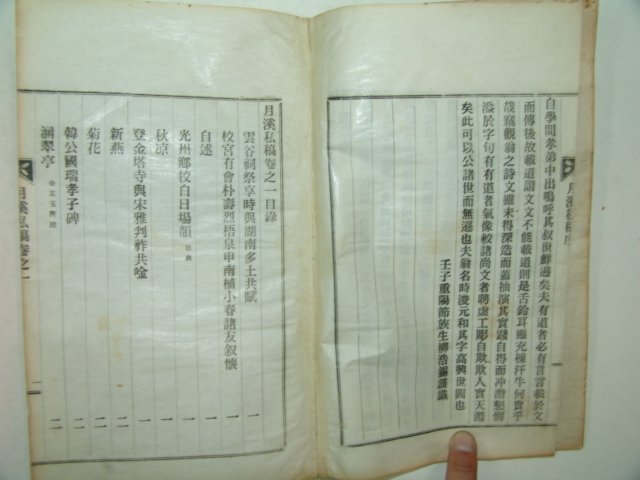 自學問孝弟中出嗚呼其叔世鮮邊矣夫有道者必有言言載於文
而傳後故載道謂文文不能載道則是舌鈴耳雖充棟汗牛何貴乎
哉竊觀翁之詩文雖未得深造而蓋抽演其實踐自得而冲澹懇惻
溢於字句有有道者氣像較諸尚文者騁虛工彫自欺欺人實天淵
矣此可以公諸世而無遜也夫翁名時浚元和其字高興世閥也
壬子重陽節族生柳浩錫謹識
月溪私稿序
月溪私稿卷之一目錄
雲谷祠祭享時與湖南多士共賦 一
校宮有會朴壽烈梧泉申南植小春諸友叙懷 一
自述 一
光州鄉校白日場韻
秋凉 一
登金塔寺與宋雅判祚共唫 一
新燕 一
菊花 二
韓公國瑞孝子碑 二
涵翠亭 二
月溪私稿卷之一
一